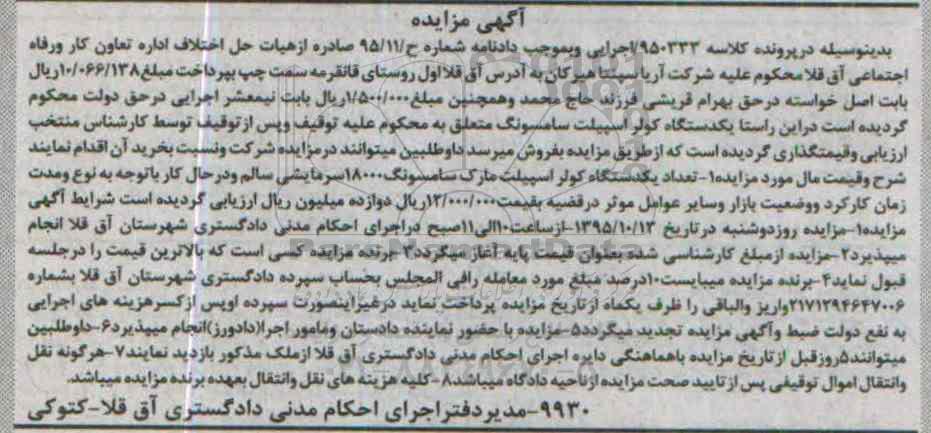 آگهی مزایده
بدینوسیله درپرونده کلاسه ۹۵۰۳۳۳/اجرایی وبموجب دادنامه شماره ح/۹۵/۱۱ صادره ازهیات حل اختلاف اداره تعاون کار ورفاه
اجتماعی آق قلا محکوم علیه شرکت آریا سپنتا هیرکان به آدرس آق قلا اول روستای قانقرمه سمت چپ بپرداخت مبلغ۱۰/۰۶۶/۱۳۸ریال
بابت اصل خواسته درحق بهرام قریشی فرزند حاج محمد وهمچنین مبلغ۱/۵۰۰/۰۰۰ریال بابت نیمعشر اجرایی درحق دولت محکوم
گردیده است دراین راستا یکدستگاه کولر اسپیلت سامسونگ متعلق به محکوم علیه توقیف وپس ازتوقیف توسط کارشناس منتخب
ارزیابی وقیمتگذاری گردیده است که ازطریق مزایده بفروش میرسد داوطلبین میتوانند درمزایده شرکت ونسبت بخرید آن اقدام نمایند
شرح وقیمت مال مورد مزایده۱-تعداد یکدستگاه کولر اسپیلت مارک سامسونگ۱۸۰۰۰سرمایشی سالم ودرحال کار باتوجه به نوع ومدت
زمان کارکرد ووضعیت بازار وسایر عوامل موثر درقضیه بقیمت۱۲/۰۰۰/۰۰۰ریال دوازده میلیون ریال ارزیابی گردیده است شرایط آگهی
مزایده۱-مزایده روزدوشنبه درتاریخ ۱۳۹۵/۱۰/۱۳-ازساعت۱۰الی۱۱صبح دراجرای احکام مدنی دادگستری شهرستان آق قلا انجام
میپذیرد۲-مزایده ازمبلغ کارشناسی شده بعنوان قیمت پایه آغاز میگردد۳-برنده مزایده کسی است که بالاترین قیمت را درجلسه
قبول نماید۴-برنده مزایده میبایست۱۰درصد مبلغ مورد معامله رافی المجلس بحساب سپرده دادگستری شهرستان آق قلا بشماره
۲۱۷۱۲۹۴۶۴۷۰۰۶واریز والباقی را ظرف یکماه ازتاریخ مزایده پرداخت نماید درغیراینصورت سپرده اوپس ازکسرهزینه های اجرایی
به نفع دولت ضبط وآگهی مزایده تجدید میگردد۵-مزایده با حضور نماینده دادستان ومامور اجرا(دادورز)انجام میپذیرد۶-داوطلبین
میتوانند۵روزقبل ازتاریخ مزایده باهماهنگی دایره اجرای احکام مدنی دادگستری آق قلا ازملک مذکور بازدید نمایند۷-هرگونه نقل
وانتقال اموال توقیفی پس ازتایید صحت مزایده ازناحیه دادگاه میباشد۸-کلیه هزینه های نقل وانتقال بعهده برنده مزایده میباشد.
۹۹۳۰-مدیردفتراجرای احکام مدنی دادگستری آق قلا-کتوکی